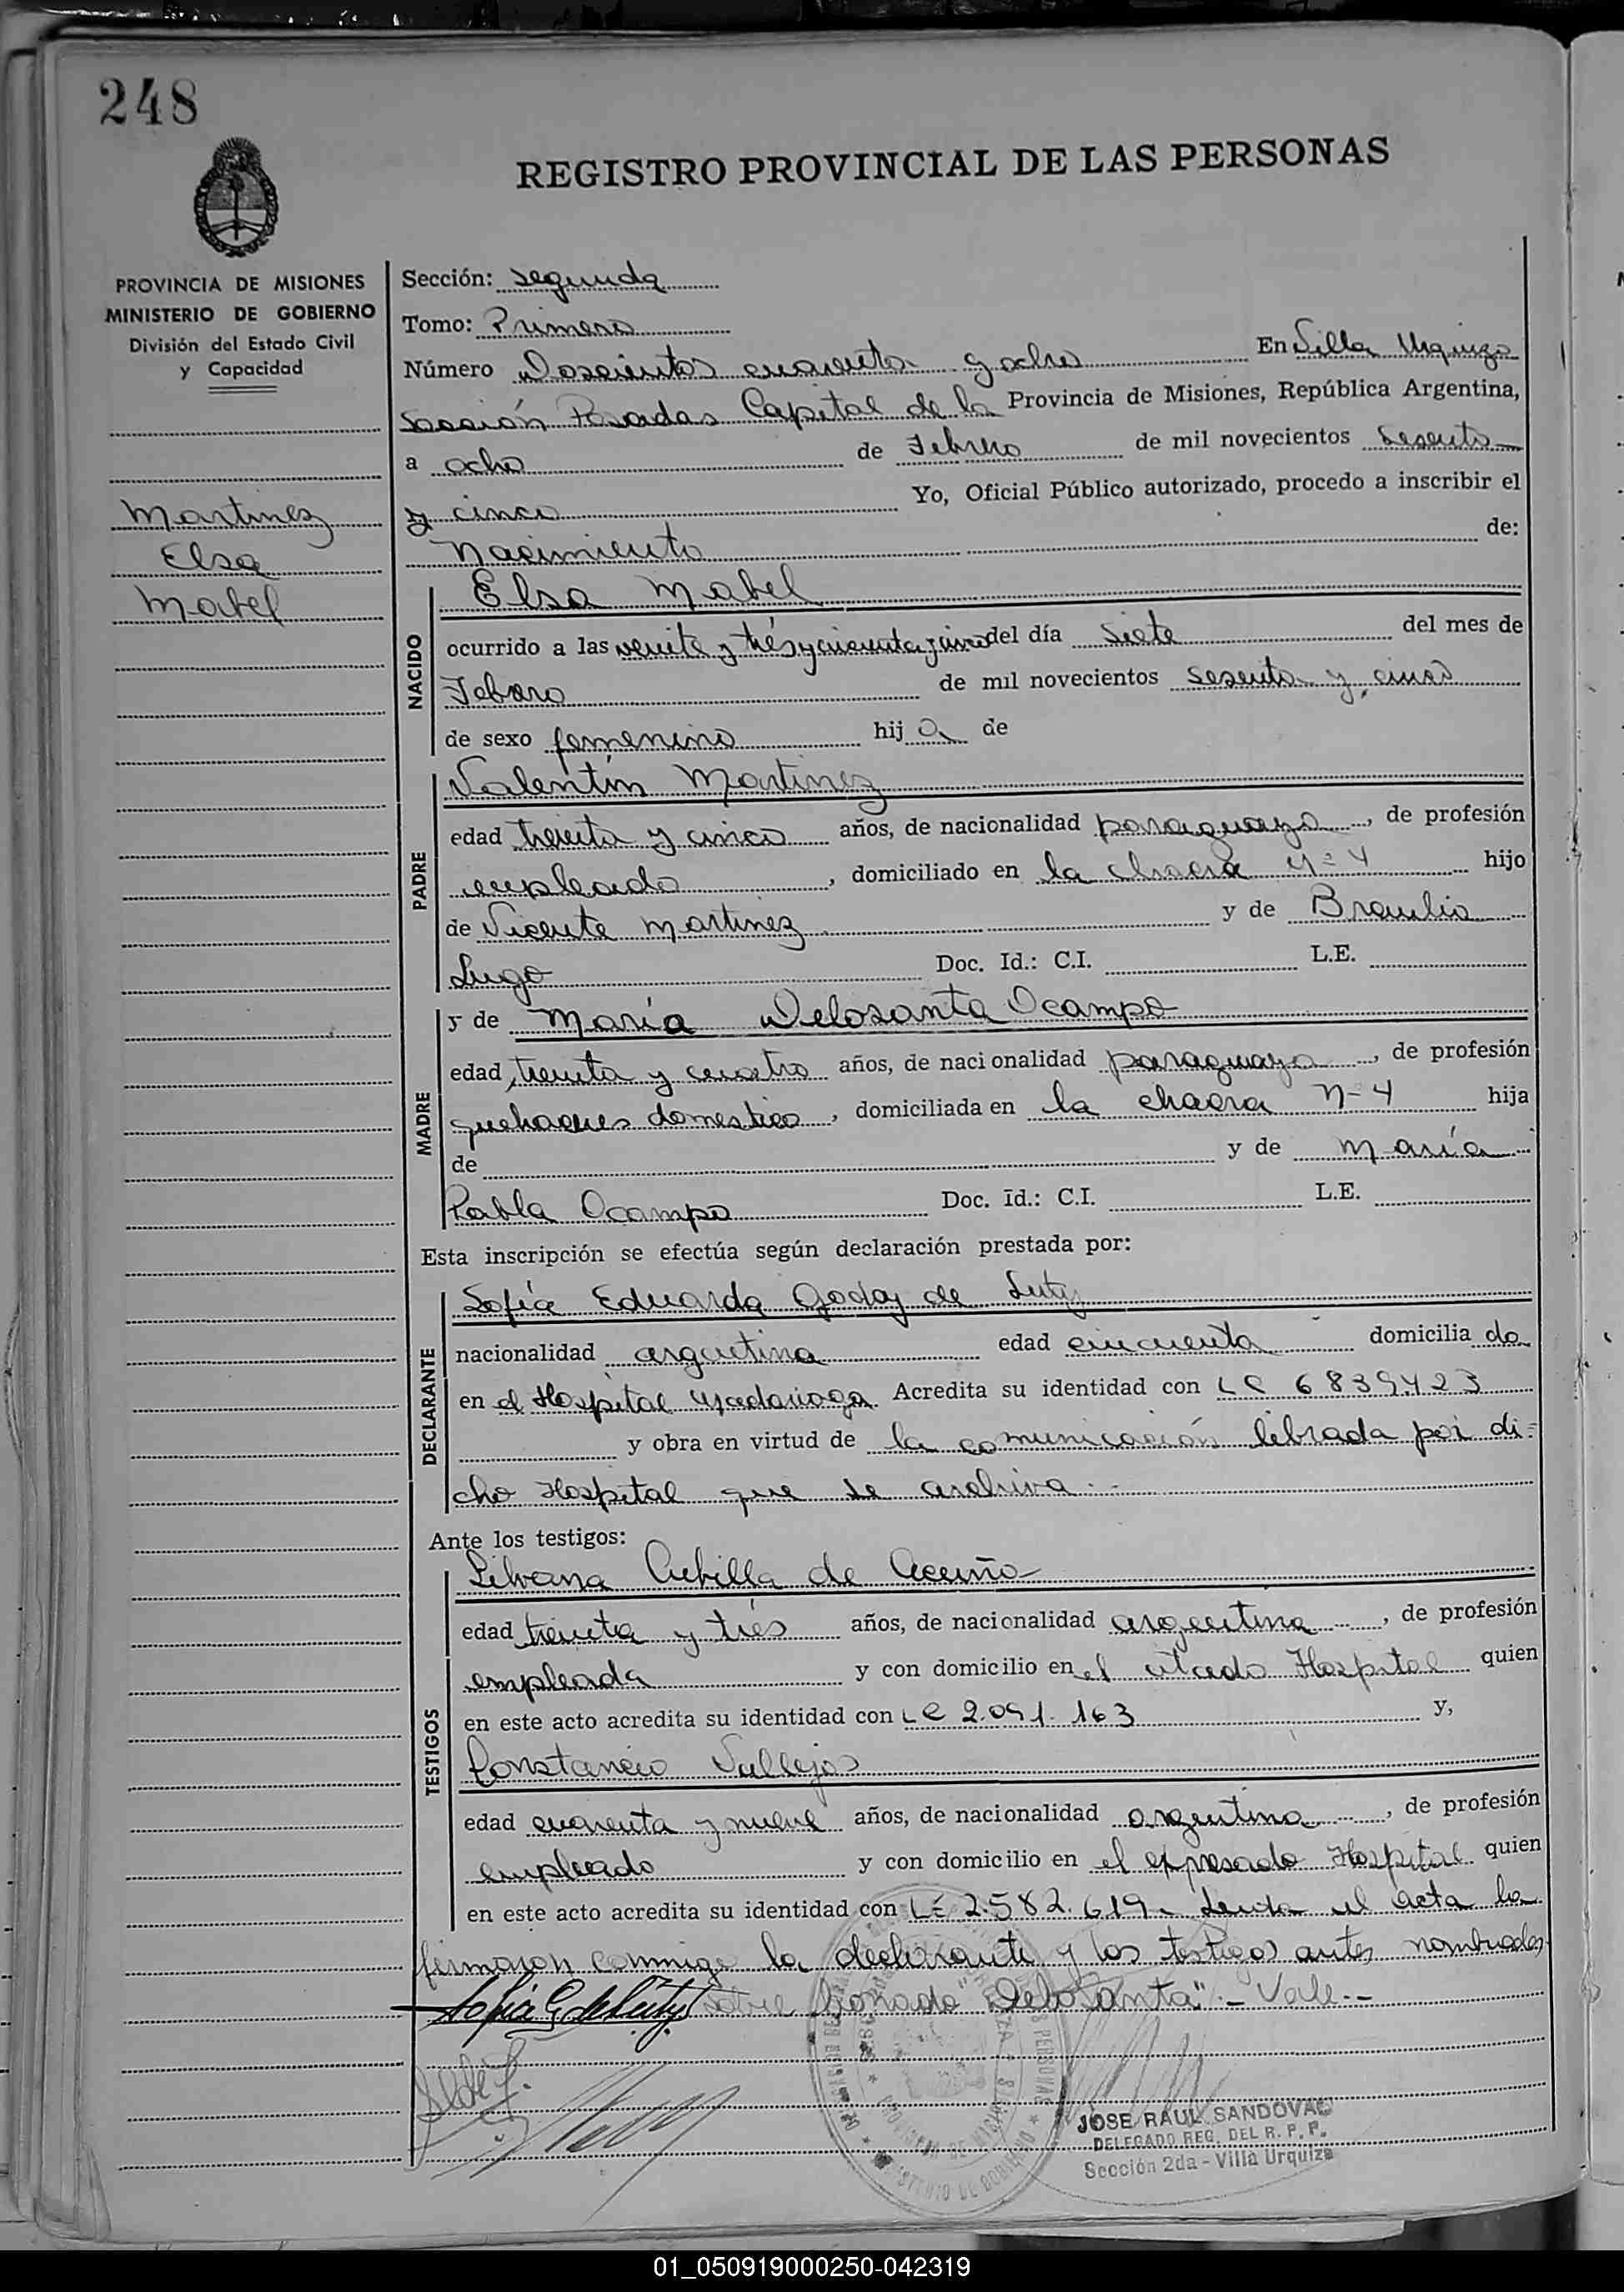 248
REGISTRO PROVINCIAL DE LAS PERSONAS
PROVINCIA DE MISIONES
MINISTERIO DE GOBIERNO
División del Estado Civil
y Capacidad
Martinez
Elsa
Mabel
Sección: segunda
Tomo: Primero
Número Doscientos cuarenta y ocho En Villa Urquiza
Sección Posadas Capital de la Provincia de Misiones, República Argentina,
a ocho de Febrero de mil novecientos sesenta
y cinco Yo, Oficial Público autorizado, procedo a inscribir el
Nacimiento de:
NACIDO
Elsa Mabel
ocurrido a las veinte y trés y cincuenta y cinco del día siete del mes de
Febrero de mil novecientos sesenta y cinco
de sexo femenino hija de
PADRE
Valentín Martinez
edad treinta y cinco años, de nacionalidad paraguaya, de profesión
empleado, domiciliado en la chacra nº 4 hijo
de Vicente Martinez y de Braulia
Lugo Doc. Id.: C.I. L.E.
MADRE
y de María Delosanta Ocampo
edad, treinta y cuatro años, de nacionalidad paraguaya, de profesión
quehaceres domestico, domiciliada en la chacra Nº 4 hija
de y de María
Pabla Ocampo Doc. Id.: C.I. L.E.
Esta inscripción se efectúa según declaración prestada por:
DECLARANTE
Sofía Eduarda Godoy de
nacionalidad argentina edad cincuenta domiciliado
en el Hospital Madariaga. Acredita su identidad con LC 6839423
y obra en virtud de la comunicación librada por di=
cho Hospital que se archiva.
Ante los testigos:
TESTIGOS
Silvana Cubilla de Acuña
edad treinta y trés años, de nacionalidad argentina, de profesión
empleada y con domicilio en el citado Hospital quien
en este acto acredita su identidad con LC 2.091.163 y,
Constancio Vallejos
edad cuarenta y nueve años, de nacionalidad argentina, de profesión
empleado y con domicilio en el expresado Hospital quien
en este acto acredita su identidad con LE 2.582.619. Leida el acta la
firmaron conmigo la declarante y los testigos antes nombrados
sobre borrado "Delosanta" - Vale.-
JOSE RAUL SANDOVAL
DELEGADO REG. DEL R. P. P.
Sección 2da - Villa Urquiza
01_050919000250-042319